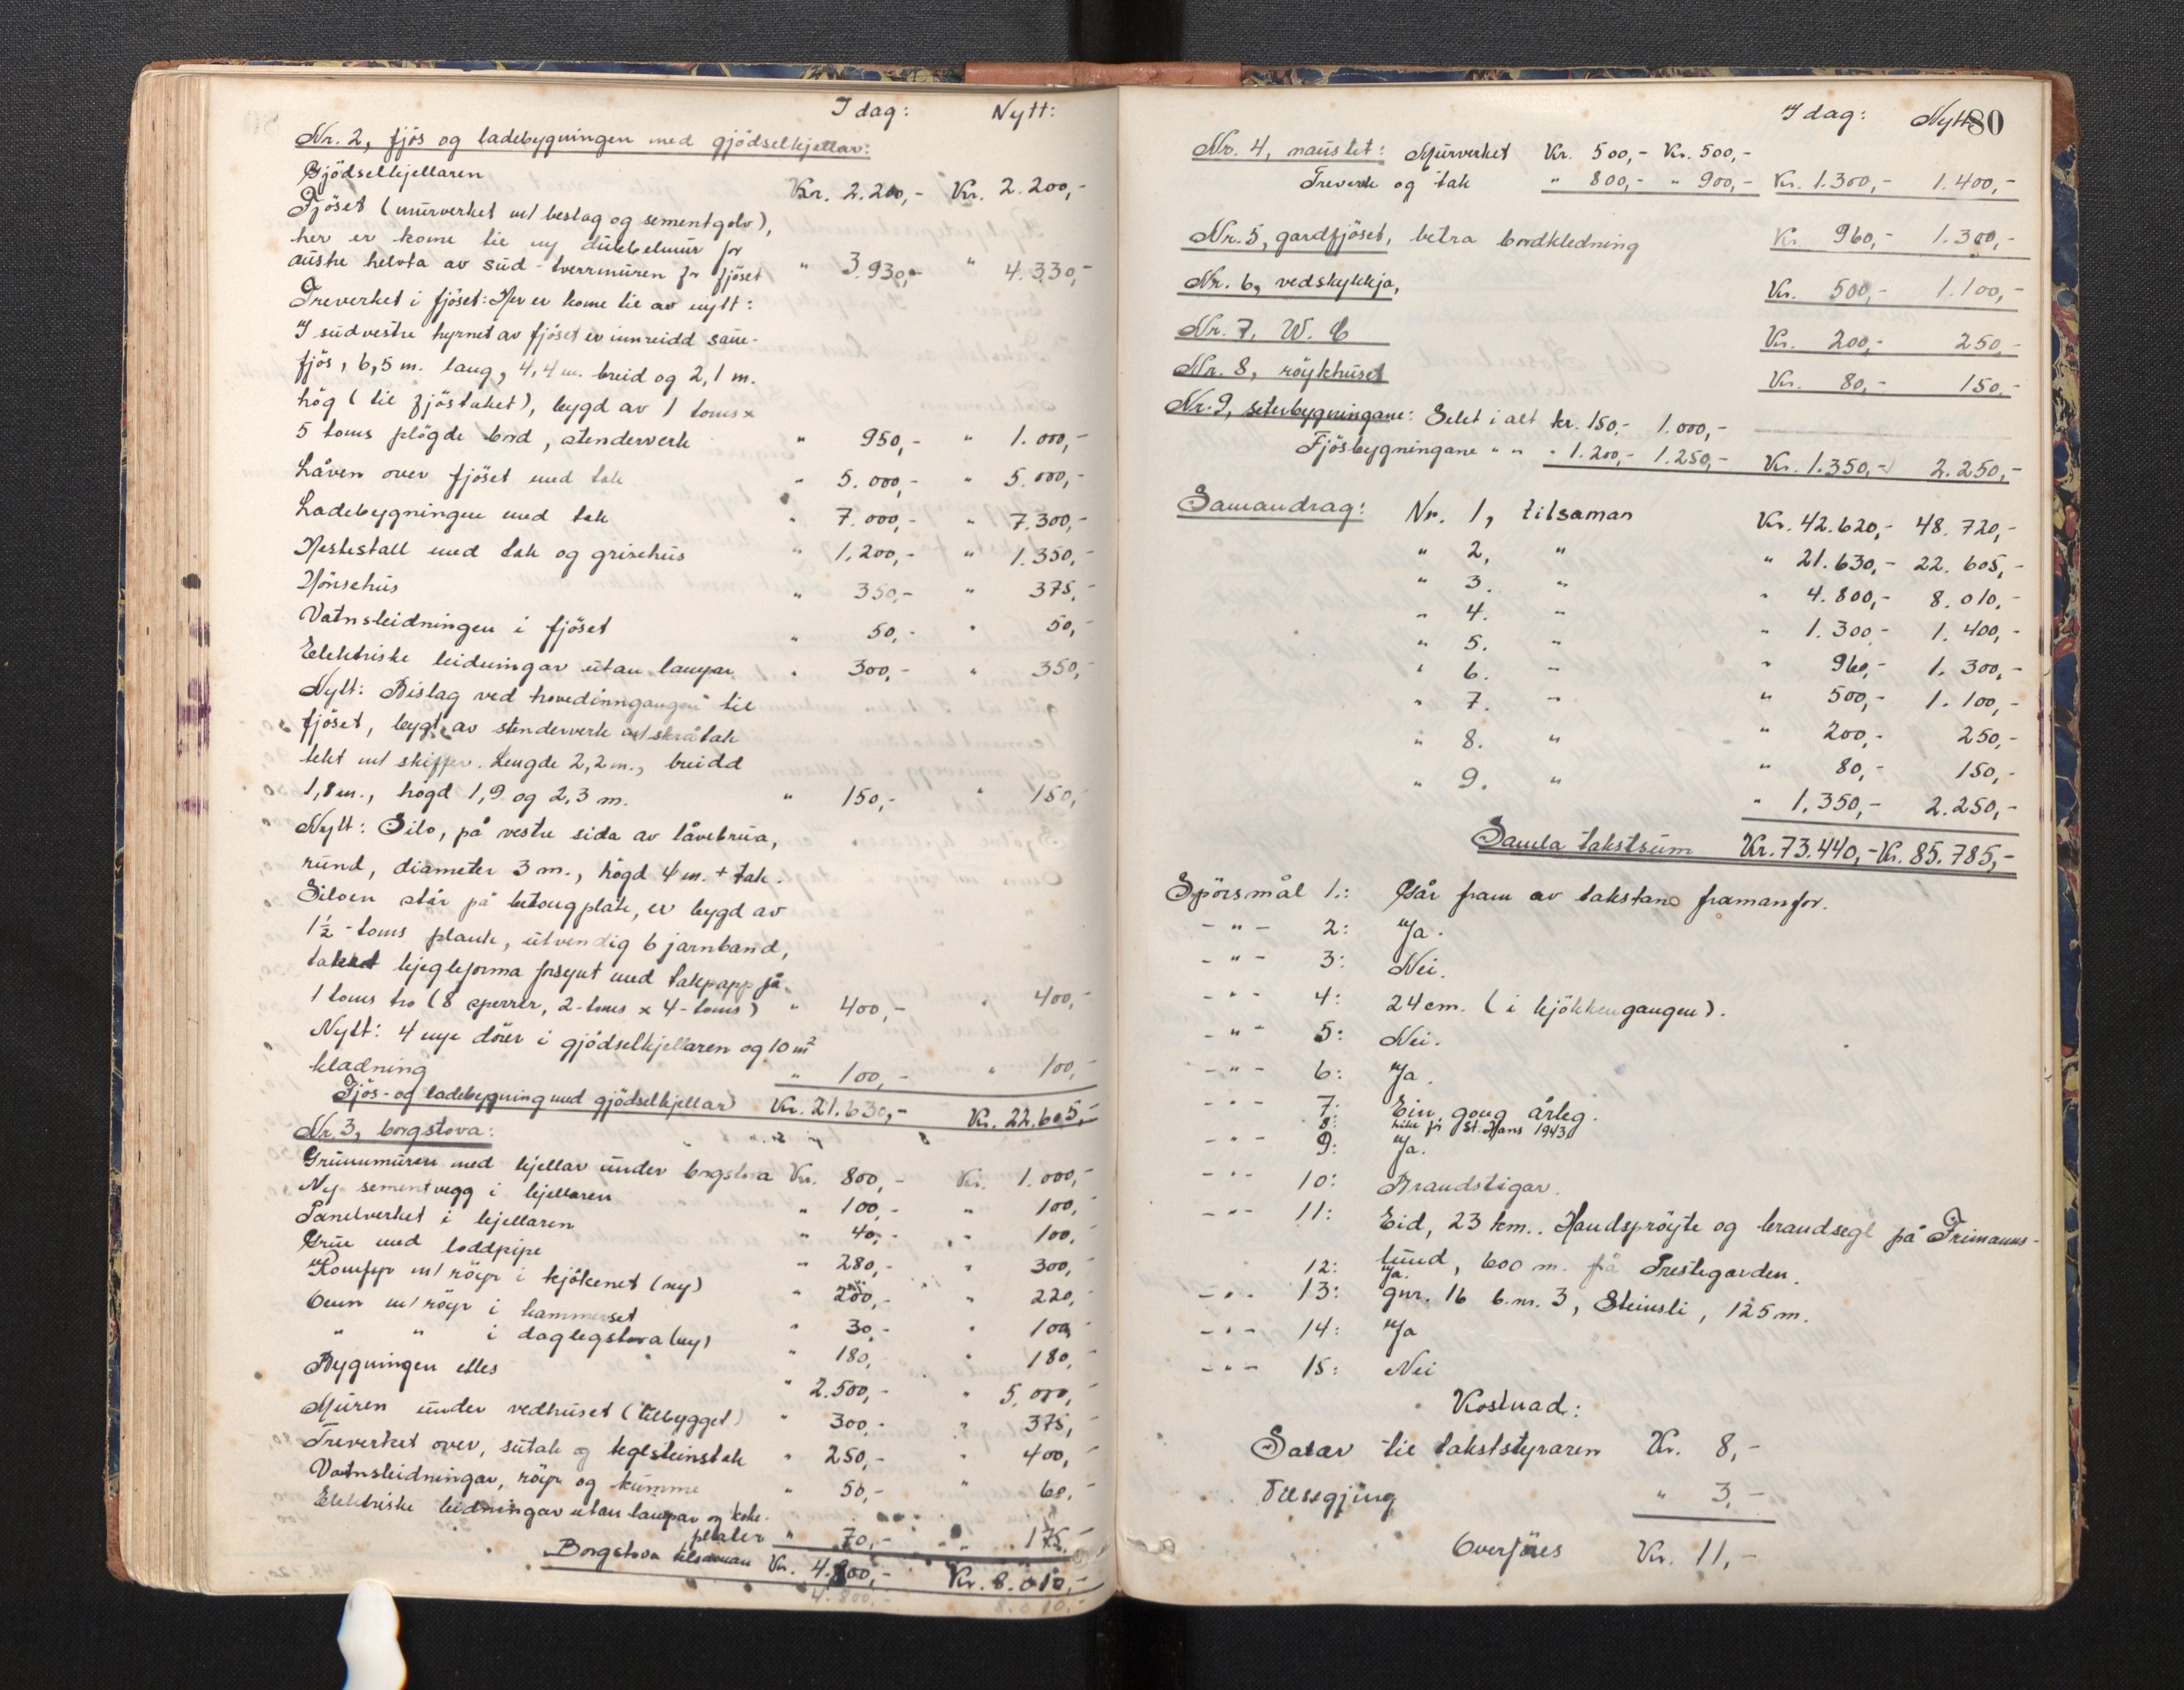 I dag: Nytt:
Nr. 2, fjös og ladebygningen med gjödselkjellar:
Gjödselkjellaren Kr. 2.200,- Kr. 2.200,-
Fjöset (murverket m/ beslag og sementgolv),
her er kome til ny dubbelmur for
austre helvta av sud-tverrmuren for fjöset " 3.930,- " 4.330,-
Treverket i fjöset: Her er kome til av nytt:
I sudvestre hyrnet av fjöset er innreidd saue-
fjös, 6,5 m. lang, 4,4 m. breid og 2,1 m.
hög (til fjöstaket), bygd av 1 toms x
5 toms plögde bord, stenderverk " 950,- " 1.000,-
Låven over fjöset med tak " 5.000,- " 5.000,-
Ladebygningen med tak " 7.000,- " 7.300,-
Hestestall med tak og grisehus " 1.200,- " 1.350,-
Hönsehus " 350,- " 375,-
Vatnsleidningen i fjöset " 50,- " 50,-
Elektriske leidningar utan lampar " 300,- " 350,-
Nytt: Bislag ved hovedinngangen til
fjöset, bygt av stenderverk m/ skråtak
tekt m/ skiffer. Lengde 2,2 m., breidd
1,8 m., högd 1,9 og 2,3 m. " 150,- " 150,-
Nytt: Silo, på vestre sida av låvebrua,
rund, diameter 3 m., högd 4 m. + tak.
Siloen står på betongplate, er bygd av
1½-toms plank, utvendig 6 jarnband,
taket kjegleforma forsynt med takpapp på
1 toms tro (8 sperrer, 2-toms x 4-toms) " 400,- " 400,-
Nytt: 4 nye dörer i gjödselkjellaren og 10 m²
kladning " 100,- " 100,-
Fjös- og ladebygning med gjödselkjellar Kr. 21.630,- Kr. 22.605,-
Nr. 3, borgstova:
Grunnmuren med kjellar under borgstova Kr. 800,- Kr. 1.000,-
Ny sementvegg i kjellaren " 100,- " 100,-
Panelverket i kjellaren " 40,- " 100,-
Grue med loddpipe " 280,- " 300,-
Komfyr m/ röyr i kjökenet (ny) " 200,- " 220,-
Omn m/ röyr i kammerset " 30,- " 100,-
" " i daglegstova (ny) " 180,- " 180,-
Bygningen elles " 2.500,- " 5.000,-
Muren under vedhuset (tilbygget) " 300,- " 375,-
Treverket over, sutak og teglsteinstak " 250,- " 400,-
Vatnsleidningar, röyr og kumme " 50,- " 60,-
Elektriske leidningar utan lampar og koke-
plater " 70,- " 175,-
Borgstova tilsaman Kr. 4.800,- Kr. 8.010,-
4.800.- 8.010.-
I dag: Nytt: 80
Nr. 4, naustet: Murverket Kr. 500,- Kr. 500,-
Treverk og tak " 800,- " 900,- Kr. 1.300,- 1.400,-
Nr. 5, gardfjöset, betra bordkledning Kr 960,- 1.300,-
Nr. 6, vedskykkja, Kr. 500,- 1.100,-
Nr. 7, W. C Kr. 200,- 250,-
Nr. 8, röykhuset Kr. 80,- 150,-
Nr. 9, seterbygningane: Selet i alt kr. 150,- 1.000,-
Fjösbygningane " " " 1.200,- 1.250,- Kr. 1.350,- 2.250,-
Samandrag: Nr. 1, tilsaman Kr. 42.620,- 48.720,-
" 2, " " 21.630,- 22.605,-
" 3. " " 4.800,- 8.010,-
" 4. " " 1.300,- 1.400,-
" 5. " " 960,- 1.300,-
" 6. " " 500,- 1.100,-
" 7. " " 200,- 250,-
" 8. " " 80,- 150,-
" 9. " " 1.350,- 2.250,-
Samla takstsum Kr. 73.440,- Kr. 85.785,-
Spörsmål 1.: Går fram av takstane framanfor.
- " - 2: Ja.
- " - 3: Nei.
- " - 4: 24 cm. (i kjökkengangen).
- " - 5: Nei.
- " - 6: Ja.
- " - 7: Ein gong årleg.
8: Like för St. Hans 1943
- " - 9: Ja.
- " - 10: Brandstigar.
- " - 11: Eid, 23 km.. Handspröyte og brandsegl på Frimanns-
lund, 600 m. frå Prestegarden.
12: Ja.
- " - 13: gnr. 16 b.nr. 3, Steinsli, 125 m.
- " - 14: Ja
- " - 15: Nei
Kostnad:
Salær til takststyraren Kr. 8,-
Tilsegjing " 3,-
Overföres Kr. 11,-